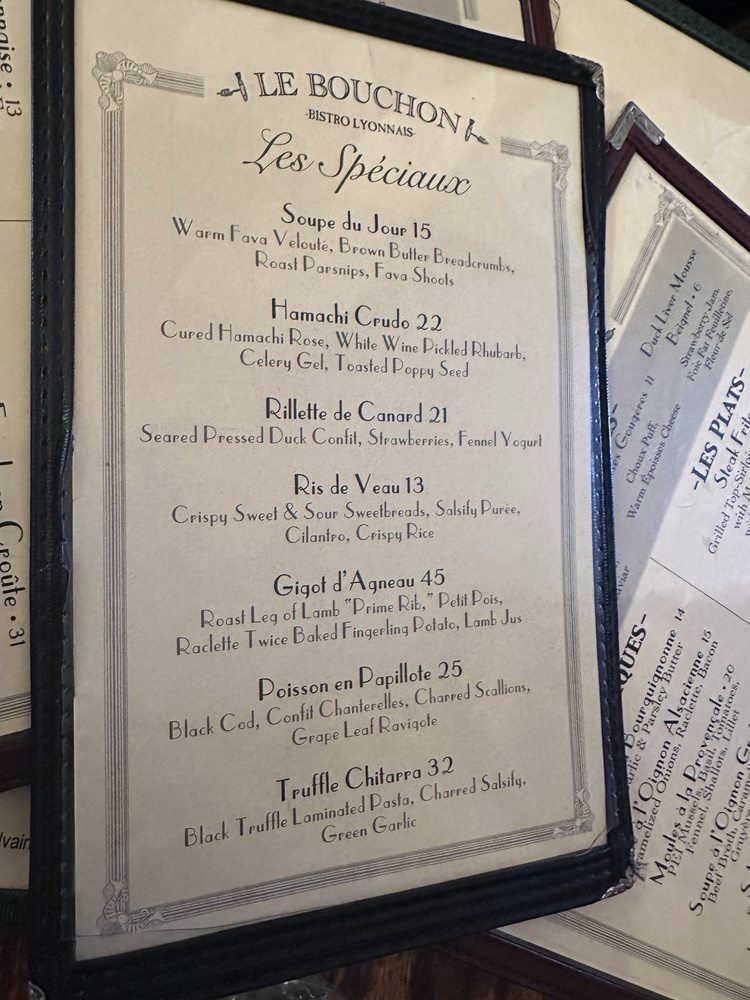 LE BOUCHON
-BISTRO LYONNAIS-
Les Spéciaux
Soupe du Jour 15
Warm Fava Velouté, Brown Butter Breadcrumbs,
Roast Parsnips, Fava Shoots
Hamachi Crudo 22
Cured Hamachi Rose, White Wine Pickled Rhubarb,
Celery Gel, Toasted Poppy Seed
Rillette de Canard 21
Seared Pressed Duck Confit, Strawberries, Fennel Yogurt
Ris de Veau 13
Crispy Sweet & Sour Sweetbreads, Salsify Purée,
Cilantro, Crispy Rice
Gigot d'Agneau 45
Roast Leg of Lamb "Prime Rib," Petit Pois,
Raclette Twice Baked Fingerling Potato, Lamb Jus
Poisson en Papillote 25
Black Cod, Confit Chanterelles, Charred Scallions,
Grape Leaf Ravigote
Truffle Chitarra 32
Black Truffle Laminated Pasta, Charred Salsify,
Green Garlic
13
Croûte • 31
Duck Liver Mousse
Beignet • 6
Strawberry Jam,
Foie Fat Feuilletine,
Fleur de Sel
Gougères 11
Choux Puff,
Warm Époisses Cheese
-LES PLATS-
Steak
Grilled
with
Bourguignonne 14
& Parsley Butter
à l'Oignon Alsacienne 15
Onions, Raclette, Bacon
Moules à la Provençale • 20
PEI Mussels, Basil, Tomatoes,
Fennel, Shallots, Lillet
Soupe à l'Oignon
Beef Broth,